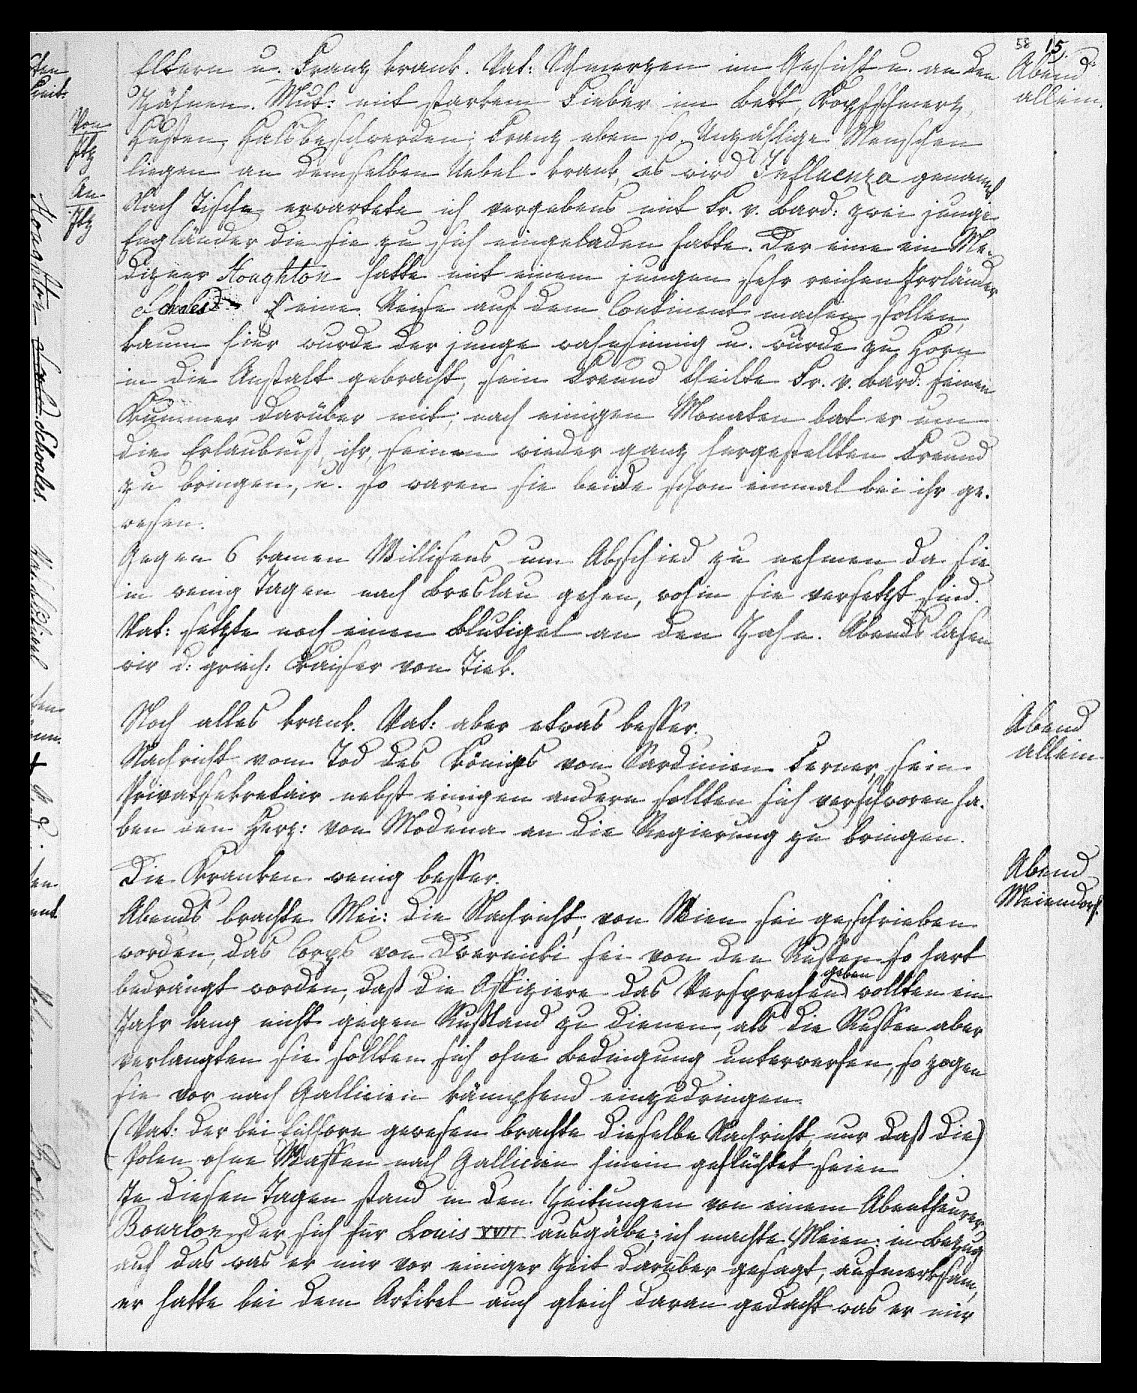 58 15.
Eltern u. Franz krank. Vat: Schmerzen im Gesicht u. an den
Zähnen. Mut: mit starkem Fieber im Bett Kopfschmerz,
Husten, Halsbeschwerden; Franz eben so. Unzählige Menschen
liegen an demselben Uebel krank, es wird Influenza genannt.
Nach Tische erwartete ich vergebens mit Fr. v. Bard: zwei junge
Engländer die sie zu sich eingeladen hatte. Der eine ein Me-
diziner Houghton hatte mit einem jungen sehr reichen Irrländer
Schoales eine Reise auf dem Continent machen sollen,
kaum hier wurde der junge wahnsinnig u. wurde zu Horn
in die Anstalt gebracht, sein Freund theilte Fr. v. Bard. seinen
Kummer darüber mit; nach einigen Monaten bat er um
die Erlaubniß ihr seinen wieder ganz hergestellten Freund
zu bringen, u. so waren sie beide schon einmal bei ihr ge-
wesen.
Gegen 6 kamen Willisens um Abschied zu nehmen da sie
in wenig Tagen nach Breslau gehen, wohin sie versetzt sind.
Vat: setzte noch einen Blutigel an den Zahn. Abends lasen
wir d: griech: Kaiser von Tiek.
Abend
allein.
Noch alles krank. Vat: aber etwas besser.
Nachricht vom Tod des Königs von Sardinien. Ferner, sein
Privatsekretair nebst einigen andern sollten sich verschworen ha-
ben den Herz: von Modena an die Regierung zu bringen.
Abend
allein
Die Kranken wenig besser.
Abends brachte Mei: die Nachricht, von Wien sei geschrieben
worden, das Corps von Dwernicki sei von den Russen so hart
bedrängt worden, daß die Offiziere das Versprechen geben wollten ein
Jahr lang nicht gegen Rußland zu dienen, als die Russen aber
verlangten sie sollten sich ohne Bedingung unterwerfen, so zogen
sie vor nach Gallicien kämpfend einzudringen.
(Vat: der bei gewesen brachte dieselbe Nachricht, nur daß die)
Polen ohne Waffen nach Gallicien hinein geflüchtet seien
In diesen Tagen stand in den Zeitungen von einem Abentheurer
Bourbon der sich für Louis XVII ausgäbe; ich machte Meien: in Bezug
auf das was er mir vor einiger Zeit darüber gesagt, aufmerksam,
er hatte bei dem Artikel auch gleich daran gedacht was er mir
Abend
Meiendorf.
Von
An
Houghton
Schoales.